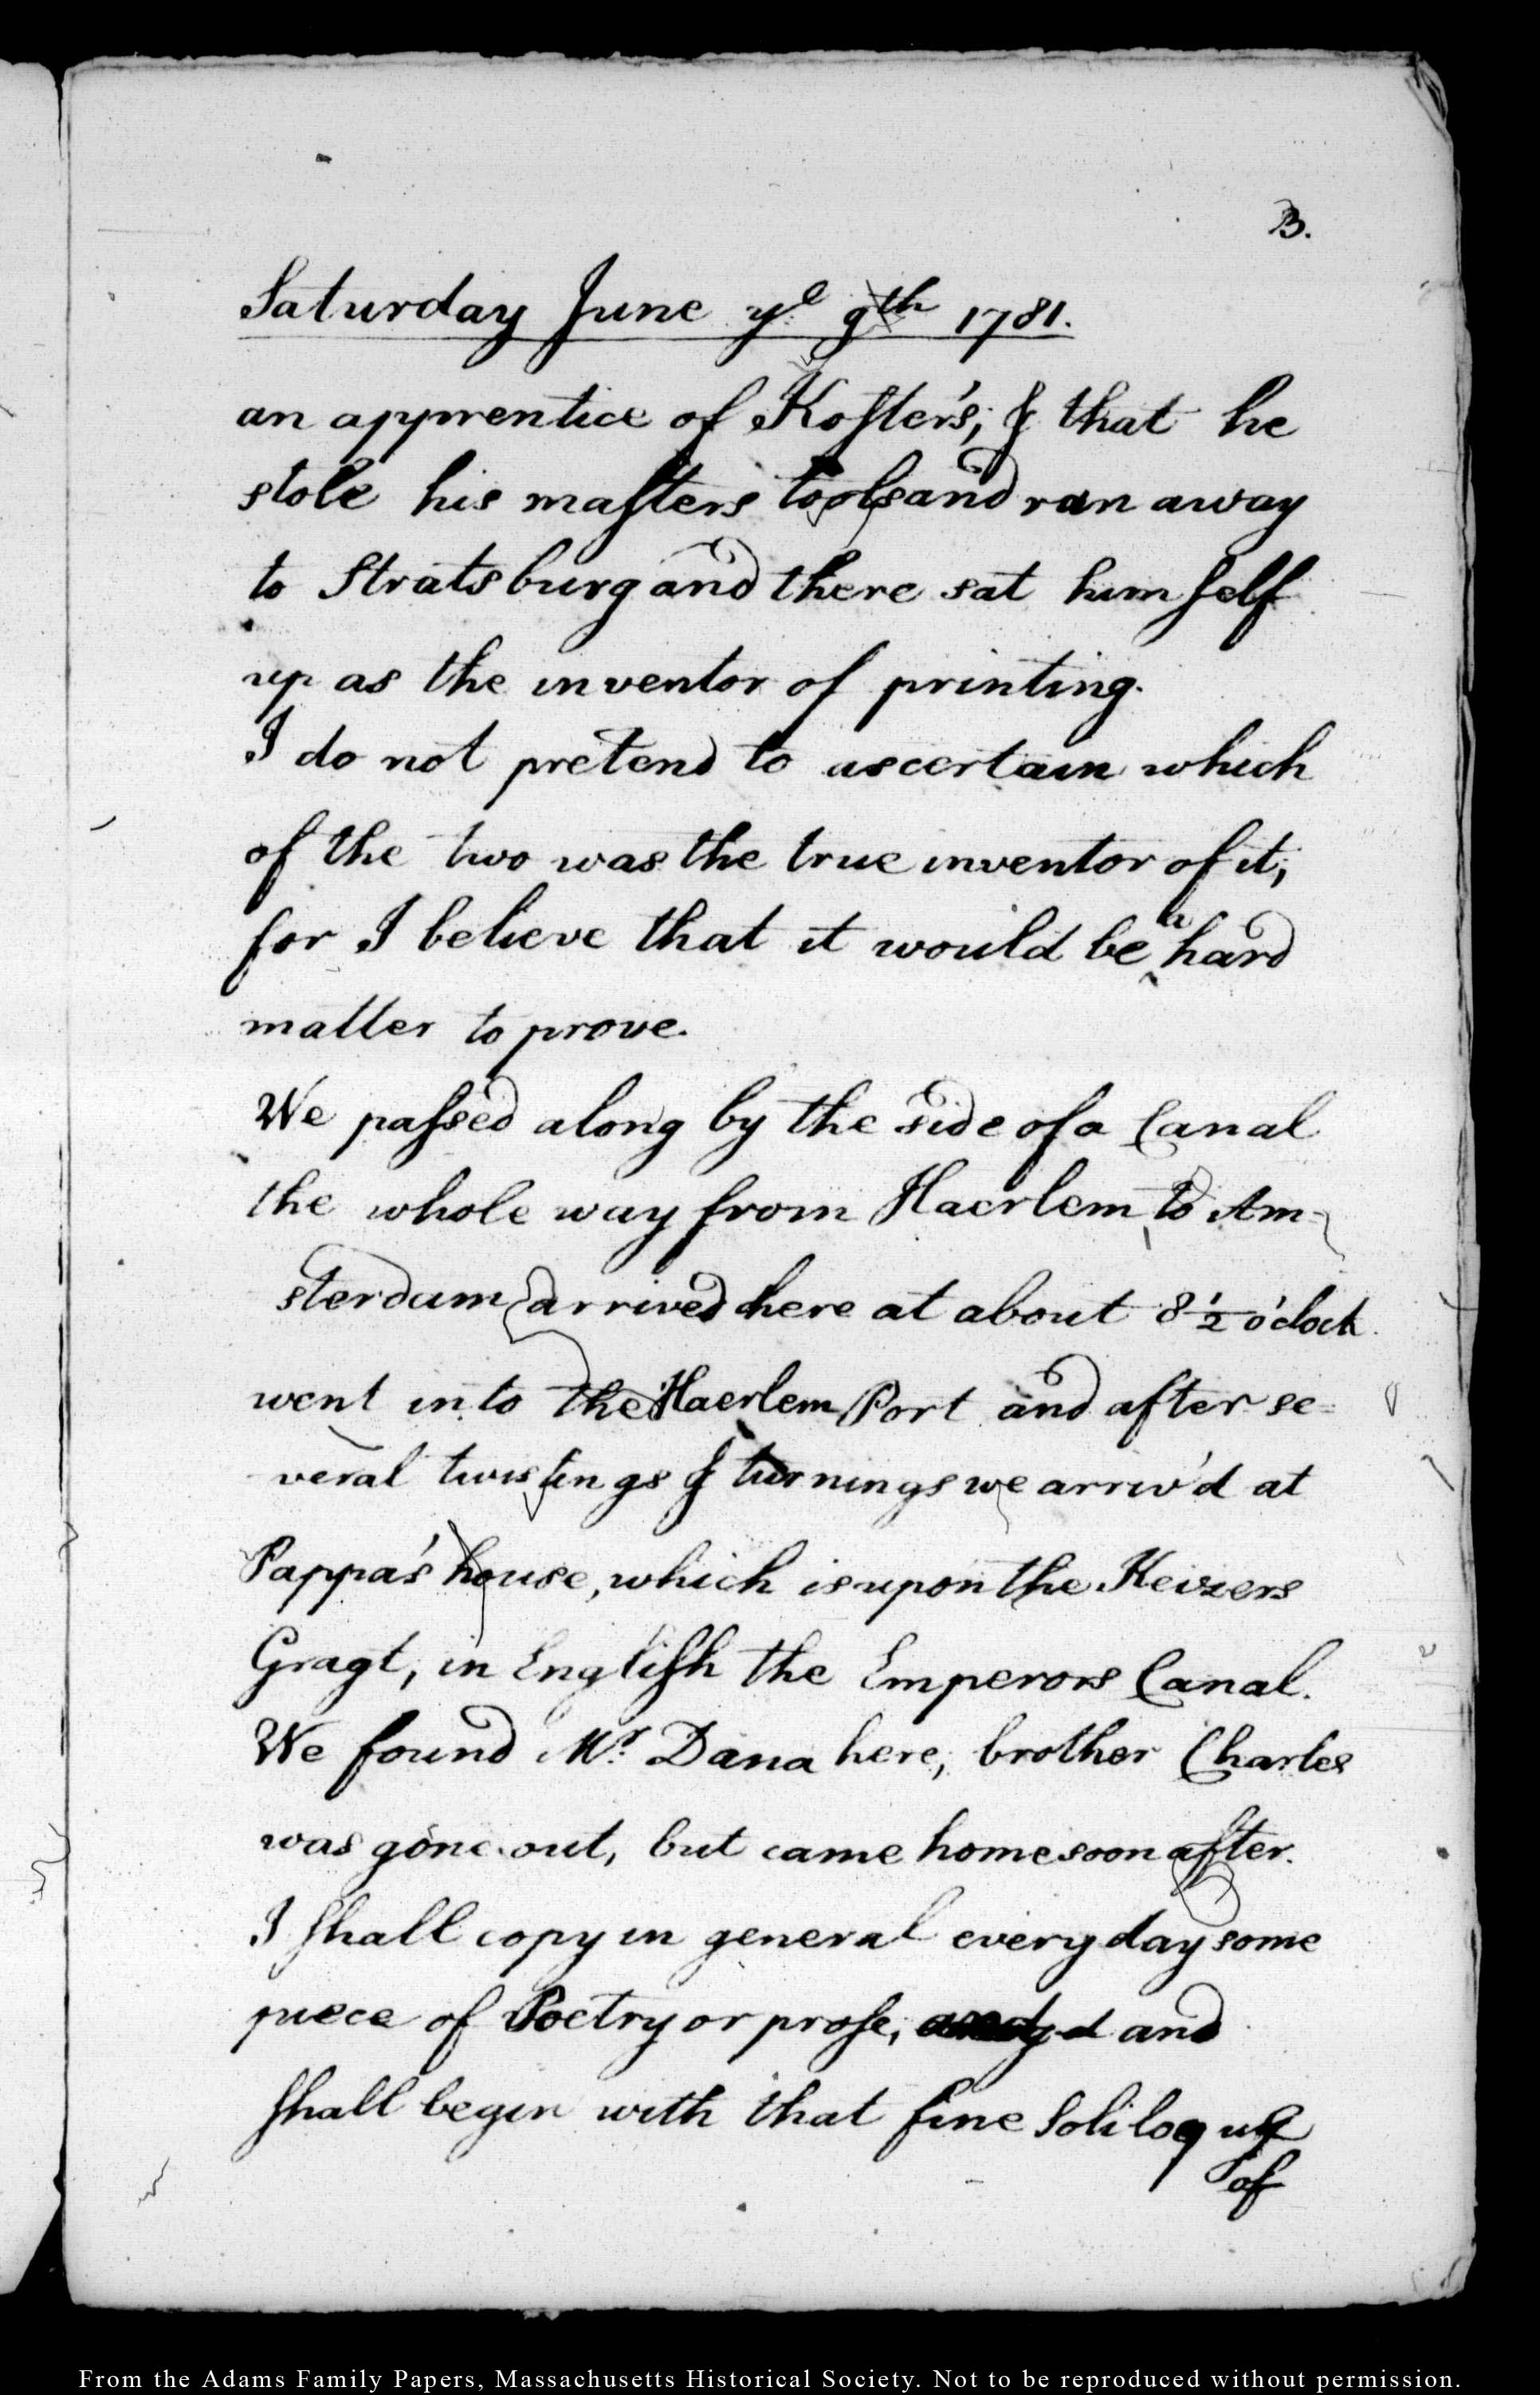 B.
Saturday June ye 9th 1781.
an apprentice of Koster's; & that he
stole his masters tools and ran away
to Stratsburg and there sat him self
up as the inventor of printing.
I do not pretend to ascertain which
of the two was the true inventor of it;
for I believe that it would be a hard
matter to prove.
We passed along by the side of a Canal
the whole way from Haerlem, to Am=
sterdam, arrived here at about 8 1/2 o'clock
went into the Haerlem Port and after se=
veral twistings & turnings we arriv'd at
Pappa's house, which is upon the Keizers
Gragt, in English the Emperors Canal.
We found Mr. Dana here; brother Charles
was gone out, but came home soon after.
I shall copy in general every day some
piece of Poetry or prose, and
shall begin with that fine Soliloquy
of
From the Adams Family Papers, Massachusetts Historical Society. Not to be reproduced without permission.